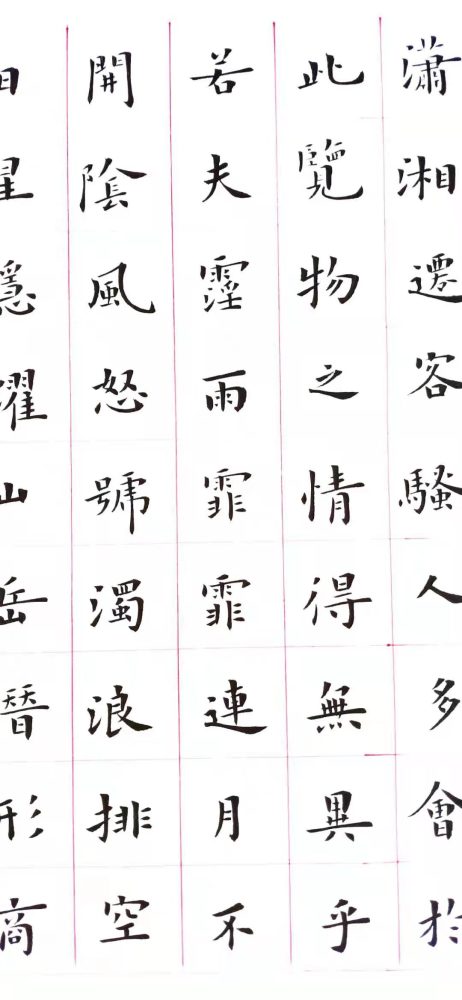 瀟湘遷客騷人多會於
此覽物之情得無異乎
若夫霪雨霏霏連月不
開陰風怒號濁浪排空
日星隱耀山岳潛形商